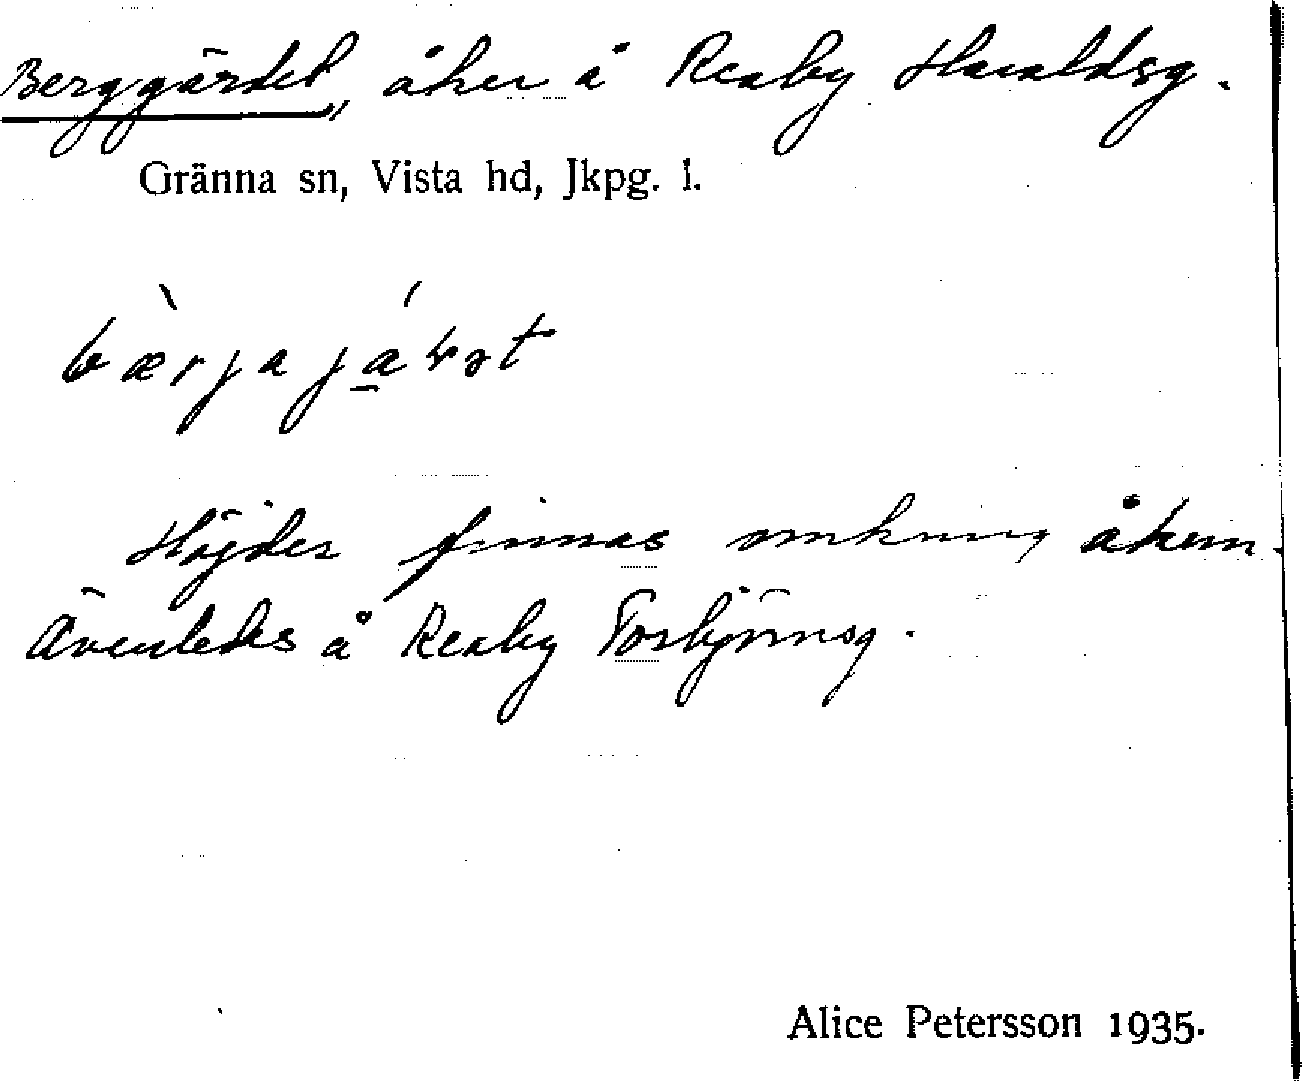 Berggärdet, åker å Reaby Haraldsg.
Gränna sn, Vista hd, Jkpg. l.
Höjder finnas omkring åkern.
Ävenledes å Reaby Torbjörnsg.
Alice Petersson 1935.